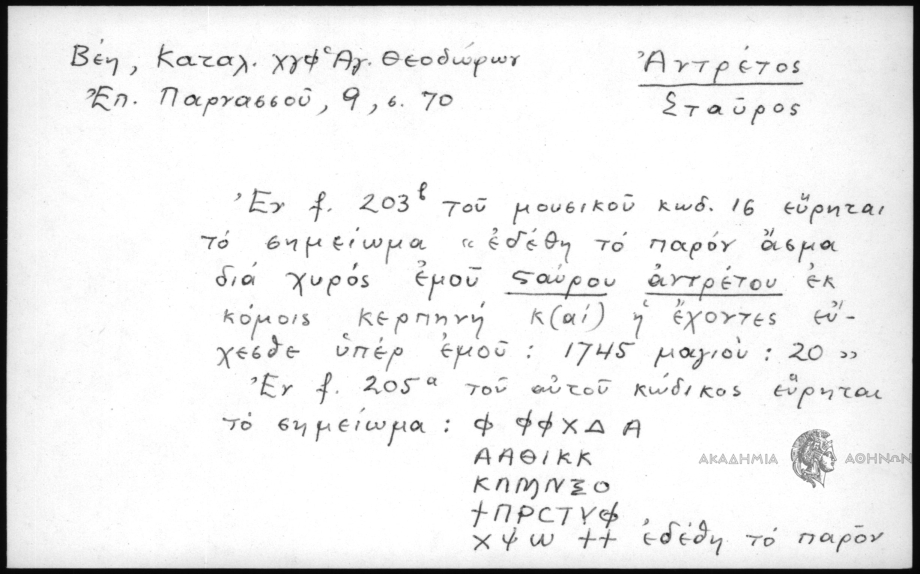 Βέη, Καταλ. χγφ Ἁγ. Θεοδώρων
Ἐπ. Παρνασσοῦ, 9, σ. 70
Ἀντρέτος
Σταῦρος
Ἐν f. 203β τοῦ μουσικοῦ κωδ. 16 εὕρηται
τό σημείωμα « ἐδέθη τό παρόν ἄσμα
διά χυρός ἐμοῦ ςαύρου ἀντρέτου ἐκ
κόμοις κερπηνή κ(αί) ἡ ἔχοντες εὔ-
χεσθε ὑπέρ ἐμοῦ : 1745 μαγιοὺ : 20 »
Ἐν f. 205α τοῦ αὐτοῦ κώδικος εὕρηται
τό σημείωμα : Φ ΦΦΧΔ Α
ΑΑΘΙΚΚ
ΚΛΜΝΞΟ
ϯΠΡCΤΥΦ
Χ Ψ Ω ϯϯ ἐδέθη τό παρὸν
ΑΚΑΔΗΜΙΑ ΑΘΗΝΩΝ